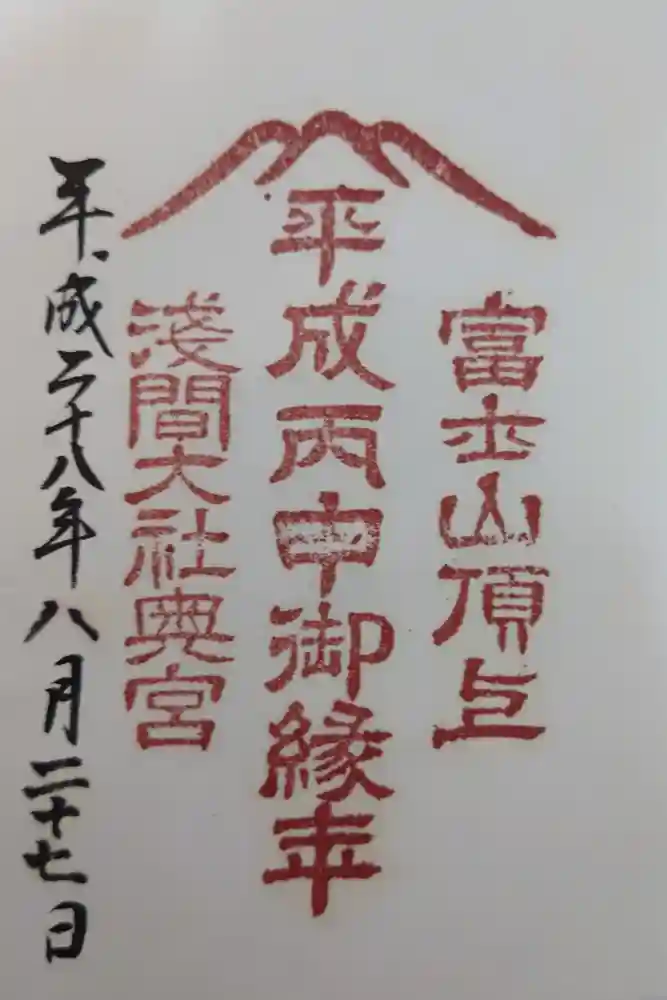 富士山頂上
平成丙申御縁年
淺間大社奥宮
平成二十八年八月二十七日